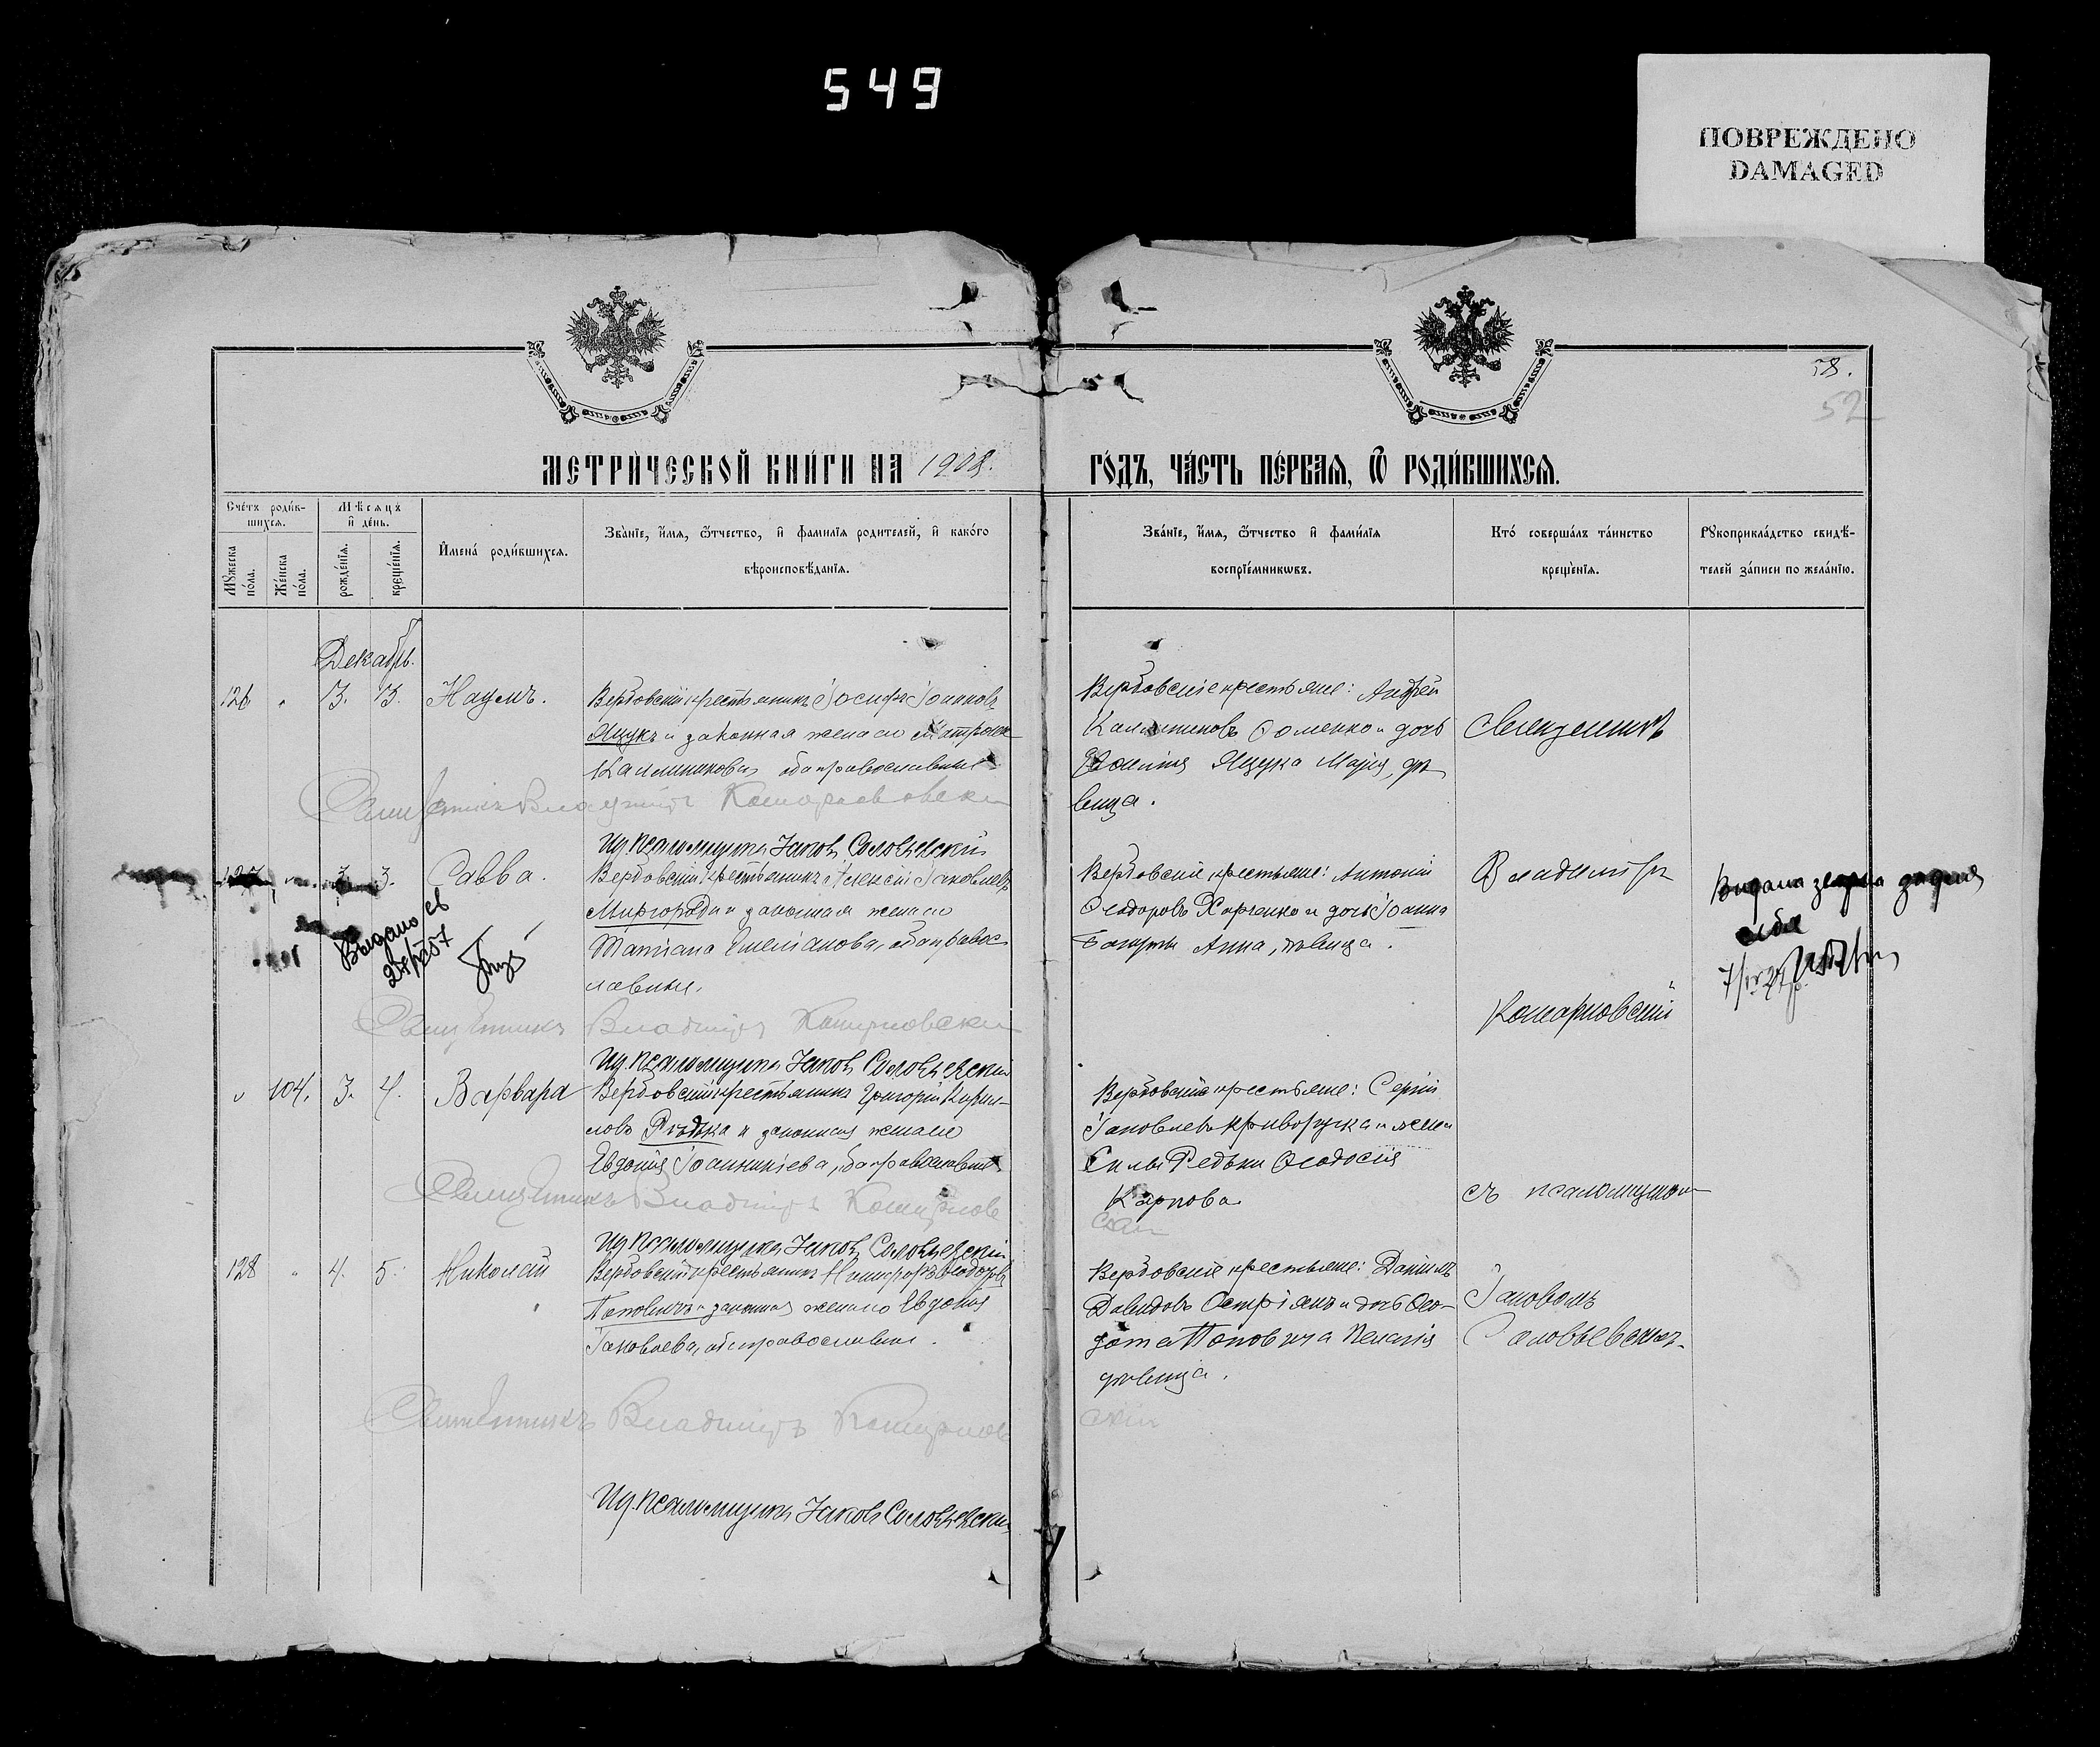 549
ПОВРЕЖДЕНО
DAMAGED
58.
52
МЕТРИЧЕСКОЙ КНИГИ НА 1908.
ГОДЪ, ЧАСТЬ ПЕРВАЯ, Ѿ РОДИВШИХСЯ.
Счетъ родив-
шихся.
Мѣсяцъ
и день.
Мужеска
пола.
Женска
пола.
рожденія.
крещенія.
Имена родившихся.
Званіе, имя, ѿтчество, и фамилія родителей, и какого
вѣроисповѣданія.
Званіе, имя, ѿтчество и фамилія
воспріемникωвъ.
Кто совершалъ таинство
крещенія.
Рукоприкладство свидѣ-
телей записи по желанію.
Декабрь.
126 " 3. 3. Наумъ.
Вербовскій крестьянинъ Іосифъ Іоанновъ
Яцукъ и законная жена его Матрона
Каллиникова, оба православные.
Священникъ Владиміръ Комарновскій
Ид. псаломщика Іаковъ Соловьевскій
Вербовскіе крестьяне: Андрей
Каллиниковъ Соменко и дочь
Яцука Марія, дѣ-
вица.
Священникъ
127 3. 3. Савва.
Вербовскій крестьянинъ Алексій Іаковлевъ
Миргородъ и законная жена его
Татіана Емеліанова, оба правос-
лавные.
Священникъ Владиміръ Комарновскій
Ид. псаломщика Іаковъ Соловьевскій
Выдано св
Вербовскіе крестьяне: Антоній
Ѳеодоровъ Харченко и дочь Іоанна
Анна, дѣвица.
Владиміръ
Комарновскій
Выдана
" 104. 3. 4. Варвара
Вербовскій крестьянинъ Григорій Кирил-
ловъ Рѣдька и законная жена его
Евдокія Іоанникіева, оба православные.
Священникъ Владиміръ Комарнов
скій
Ид. псаломщика Іаковъ Соловьевскій
Вербовскіе крестьяне: Сергій
Іаковлевъ Криворучка и жена
Силы Редьки Ѳеодосія
Карпова
съ псаломщикомъ
128 " 4. 5. Николай
Вербовскій крестьянинъ Никифоръ Ѳеодотовъ
Поповичъ и законная жена его Евдокія
Іаковлева, оба православные.
Священникъ Владиміръ Комарнов
скій
Ид. псаломщика Іаковъ Соловьевскій
Вербовскіе крестьяне: Даніилъ
Давидовъ Остріянъ и дочь Ѳео-
дота Поповича Пелагія
дѣвица.
Іаковомъ
Соловьевскимъ